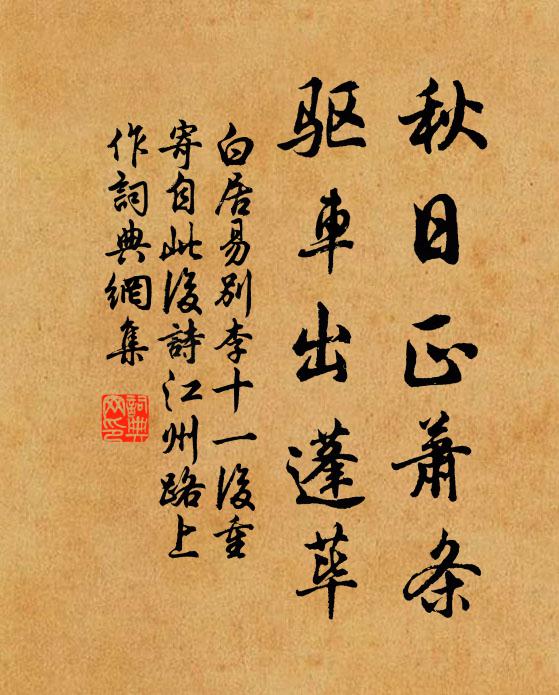 秋日正蕭条
驱車出蓬荜
白居易别李十一後重
寄自此後詩江州路上
作詞典網集
詞典网印